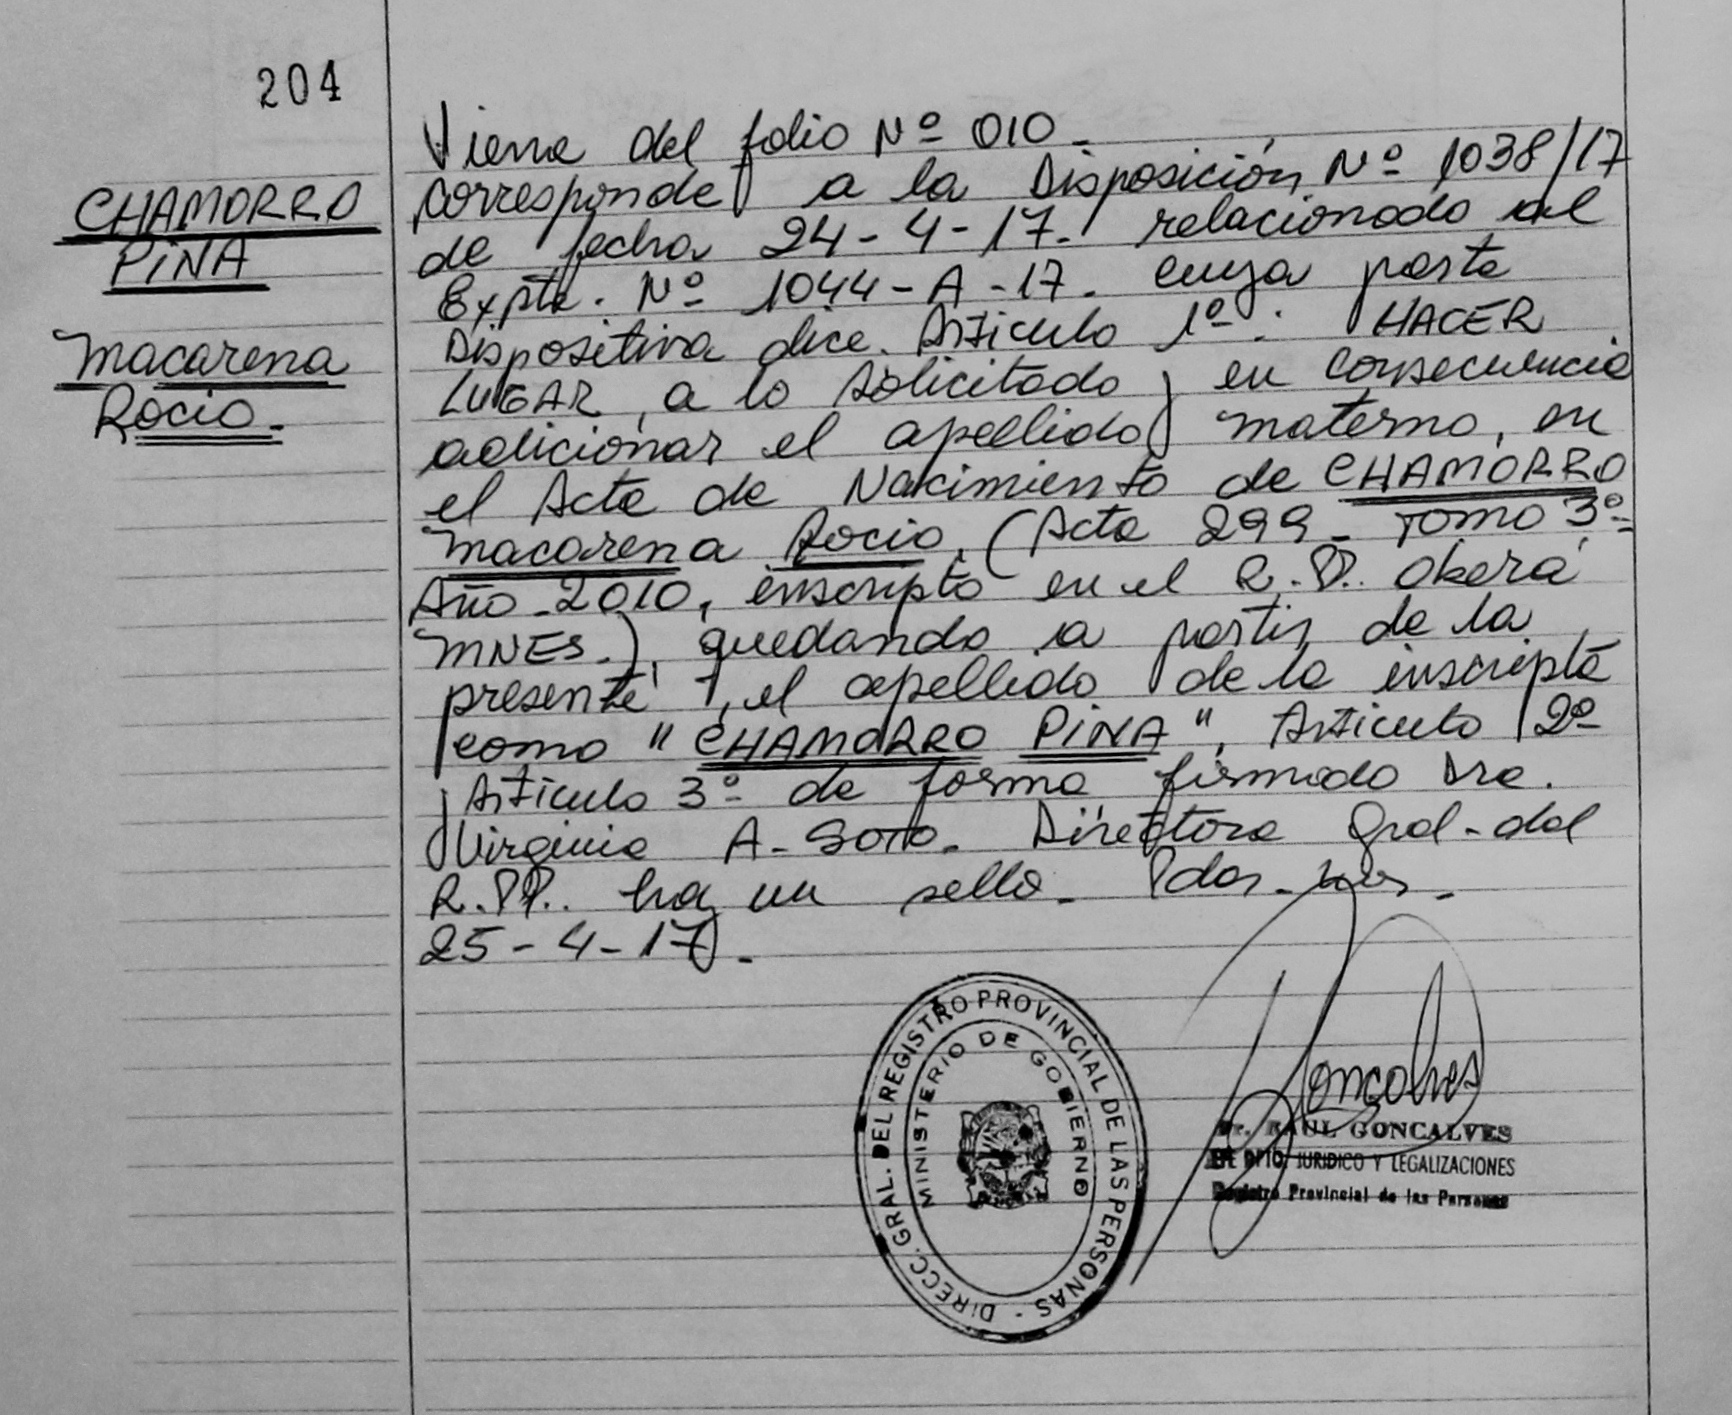 204
CHAMORRO
PiNA
Macarena
Rocio.
Viene del folio Nº 010.
Corresponde a la Disposición Nº 1038/17
de fecha 24-4-17. relacionado al
Expte. Nº 1044-A-17. cuya parte
Dispositiva dice. Artículo 1º: HACER
LUGAR, a lo solicitado y en consecuencia
adicionar el apellido materno, en
el Acta de Nacimiento de CHAMORRO
Macarena Rocio, (Acta 299 - Tomo 3º-
Año-2010, inscripto en el R.P. Oberá
MNES.), quedando a partir de la
presente, el apellido de la inscripta
como "CHAMORRO PiNA". Artículo 2º
y Artículo 3º de forma firmado Dra.
Virginia A. Soto. Directora Gral. del
R.PP. hay un sello. Pdas. Mnes.
25-4-17.
DIRECC. GRAL. DEL REGISTRO PROVINCIAL DE LAS PERSONAS -
MINISTERIO DE GOBIERNO
Goncalves
Dr. RAUL GONCALVES
DPTO. JURIDICO Y LEGALIZACIONES
Registro Provincial de las Personas